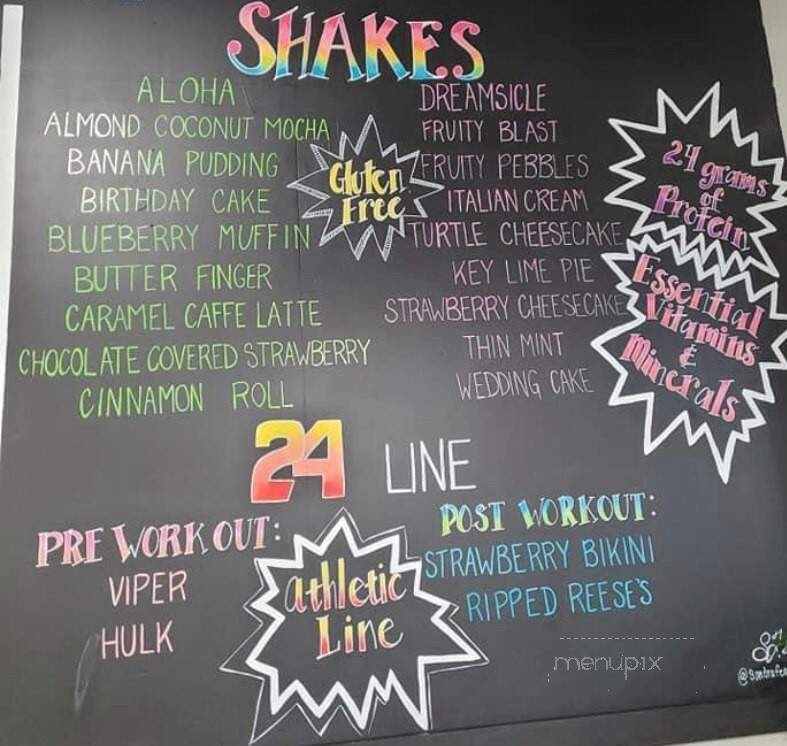 SHAKES
ALOHA
ALMOND COCONUT MOCHA
BANANA PUDDING
BIRTHDAY CAKE
BLUEBERRY MUFFIN
BUTTER FINGER
CARAMEL CAFFE LATTE
CHOCOLATE COVERED STRAWBERRY
CINNAMON ROLL
Gluten
Free
DREAMSICLE
FRUITY BLAST
FRUITY PEBBLES
ITALIAN CREAM
TURTLE CHEESECAKE
KEY LIME PIE
STRAWBERRY CHEESECAKE
THIN MINT
WEDDING CAKE
24 grams
of
Protein
Essential
Vitamins
&
Minerals
24 LINE
PRE WORK OUT:
VIPER
HULK
athletic
Line
POST WORKOUT:
STRAWBERRY BIKINI
RIPPED REESE'S
menupix